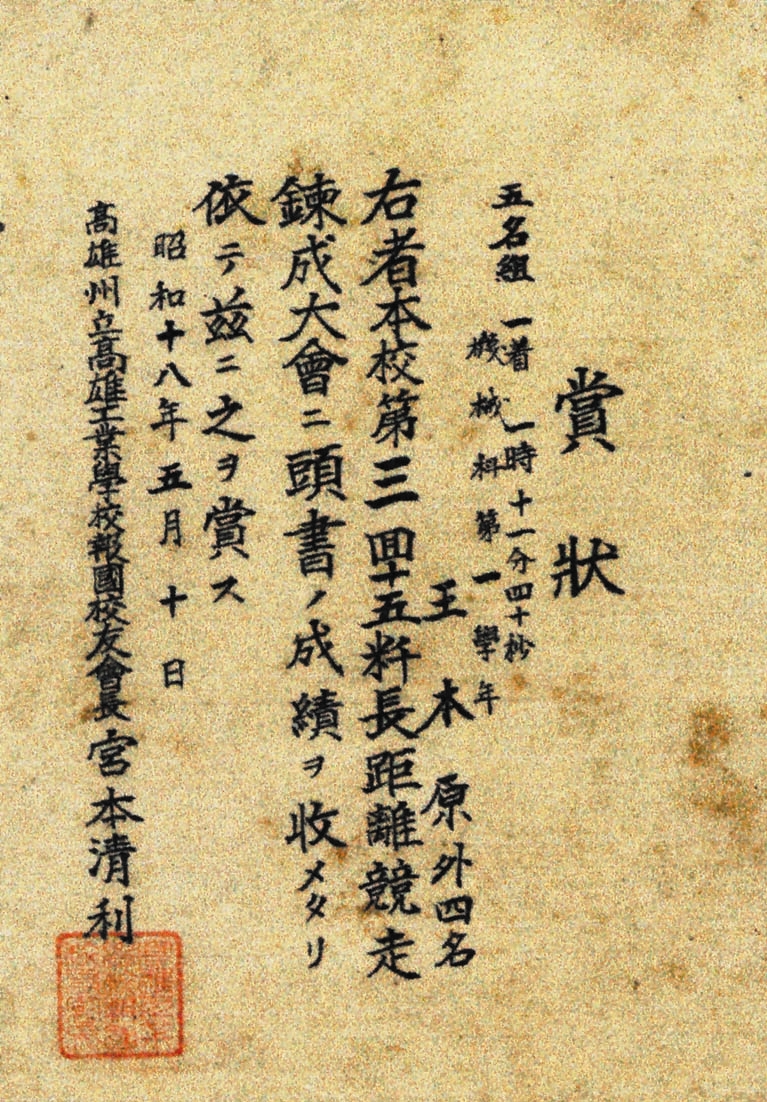 賞狀
五名組 一着 一時十一分四十秒
機械科第一學年
王木原外四名
右者本校第三回十五粁長距離競走
鍊成大會ニ頭書ノ成績ヲ收メタリ
依テ茲ニ之ヲ賞ス
昭和十八年五月十日
高雄州立高雄工業學校報國校友會長 宮本清利